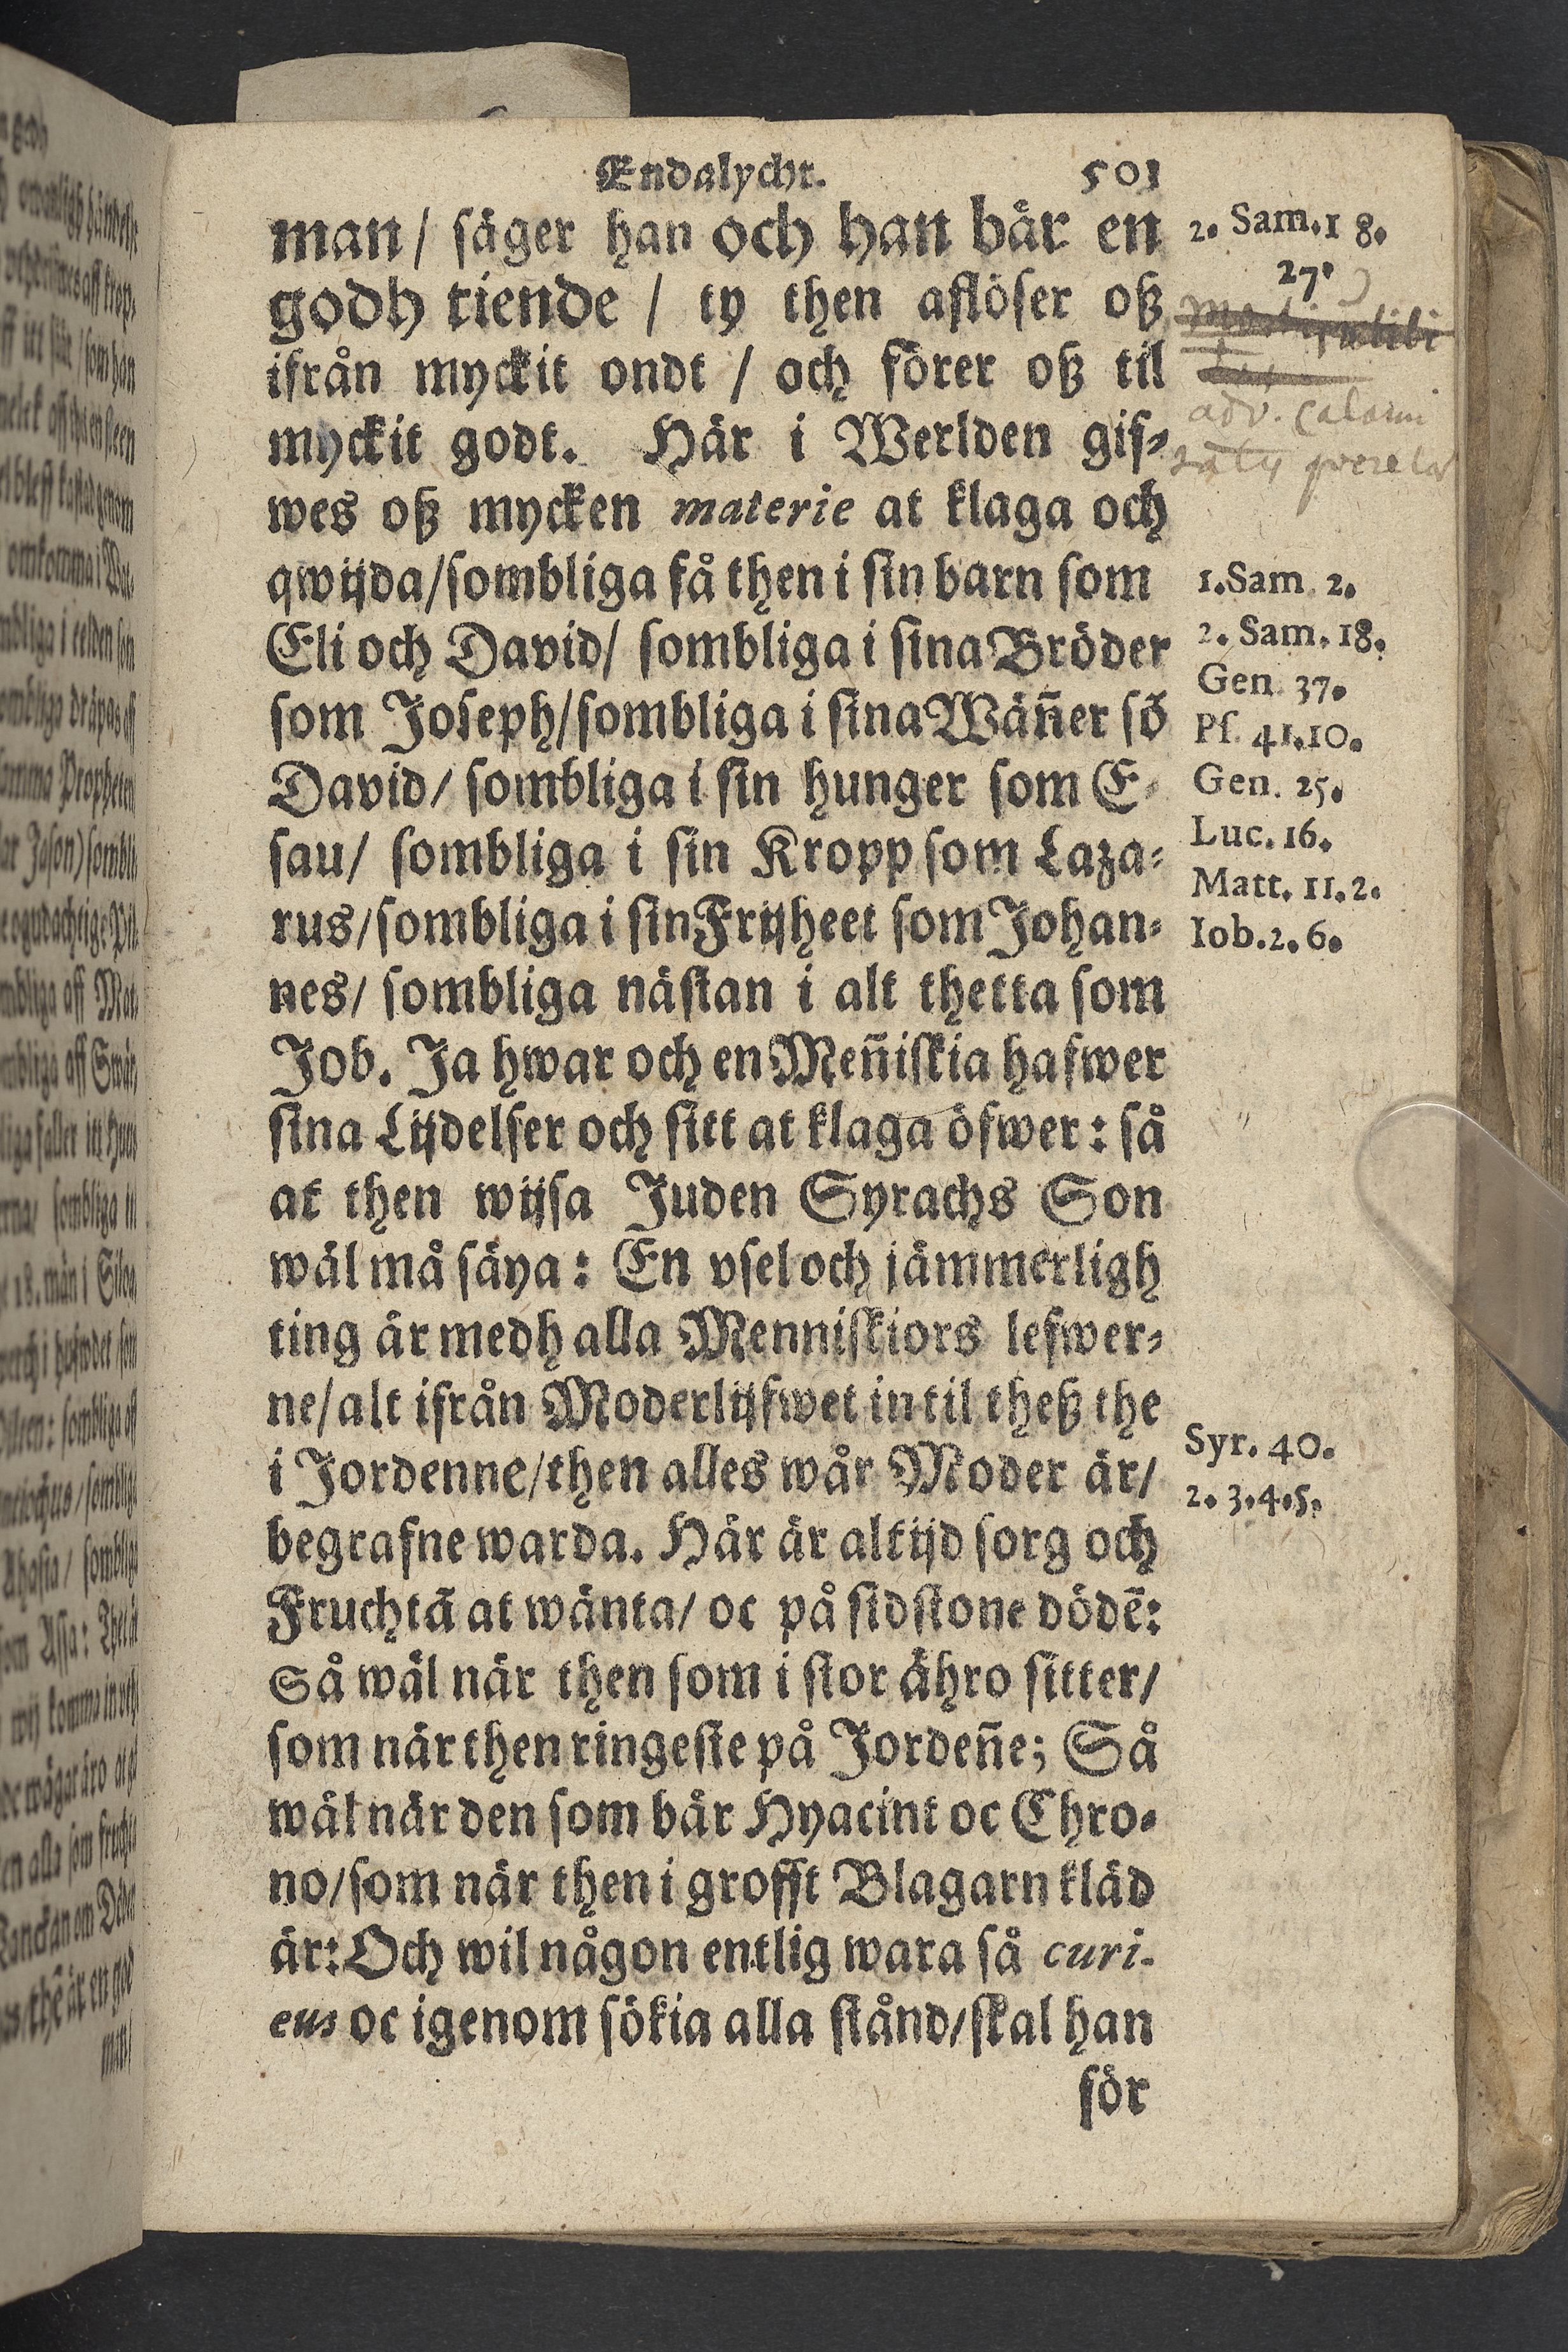 Endalycht. 501
man/ säger han och han bär en
godh tiende / ty then aflöser oß
ifrån myckit ondt / och förer oß til
myckit godt. Här i Werlden gif⸗
wes oß mycken materie at klaga och
qwijda/sombliga få then i sin barn som
Eli och David/ sombliga i sina Bröder
som Joseph/sombliga i sina Wäñer sõ
David/ sombliga i sin hunger som E⸗
sau/ sombliga i sin Kropp som Laza⸗
rus/sombliga i sin Frijheet som Johan⸗
nes/ sombliga nästan i alt thetta som
Job. Ja hwar och en Meñiskia hafwer
sina Lijdelser och sitt at klaga öfwer: så
at then wijsa Juden Syrachs Son
wäl må säya: En vsel och jämmerligh
ting är medh alla Menniskiors lefwer⸗
ne/alt ifrån Moderlijfwet in til theß the
i Jordenne/then alles wår Moder är/
begrafne warda. Här är altijd sorg och
Fruchtã at wänta/ oc på sidstone dödẽ:
Så wäl när then som i stor ähro sitter/
som när then ringeste på Jordeñe; Så
wäl när den som bär Hyacint oc Chro⸗
no/som när then i grofft Blagarn kläd
är: Och wil någon entlig wara så curi-
eus oc igenom sökia alla stånd/skal han
för
2. Sam. 18.
27.
adv.
1. Sam. 2.
2. Sam. 18.
Gen. 37.
Ps. 41.10.
Gen. 25.
Luc. 16.
Matt. 11. 2.
Iob. 2. 6.
Syr. 40.
2. 3. 4. 5.